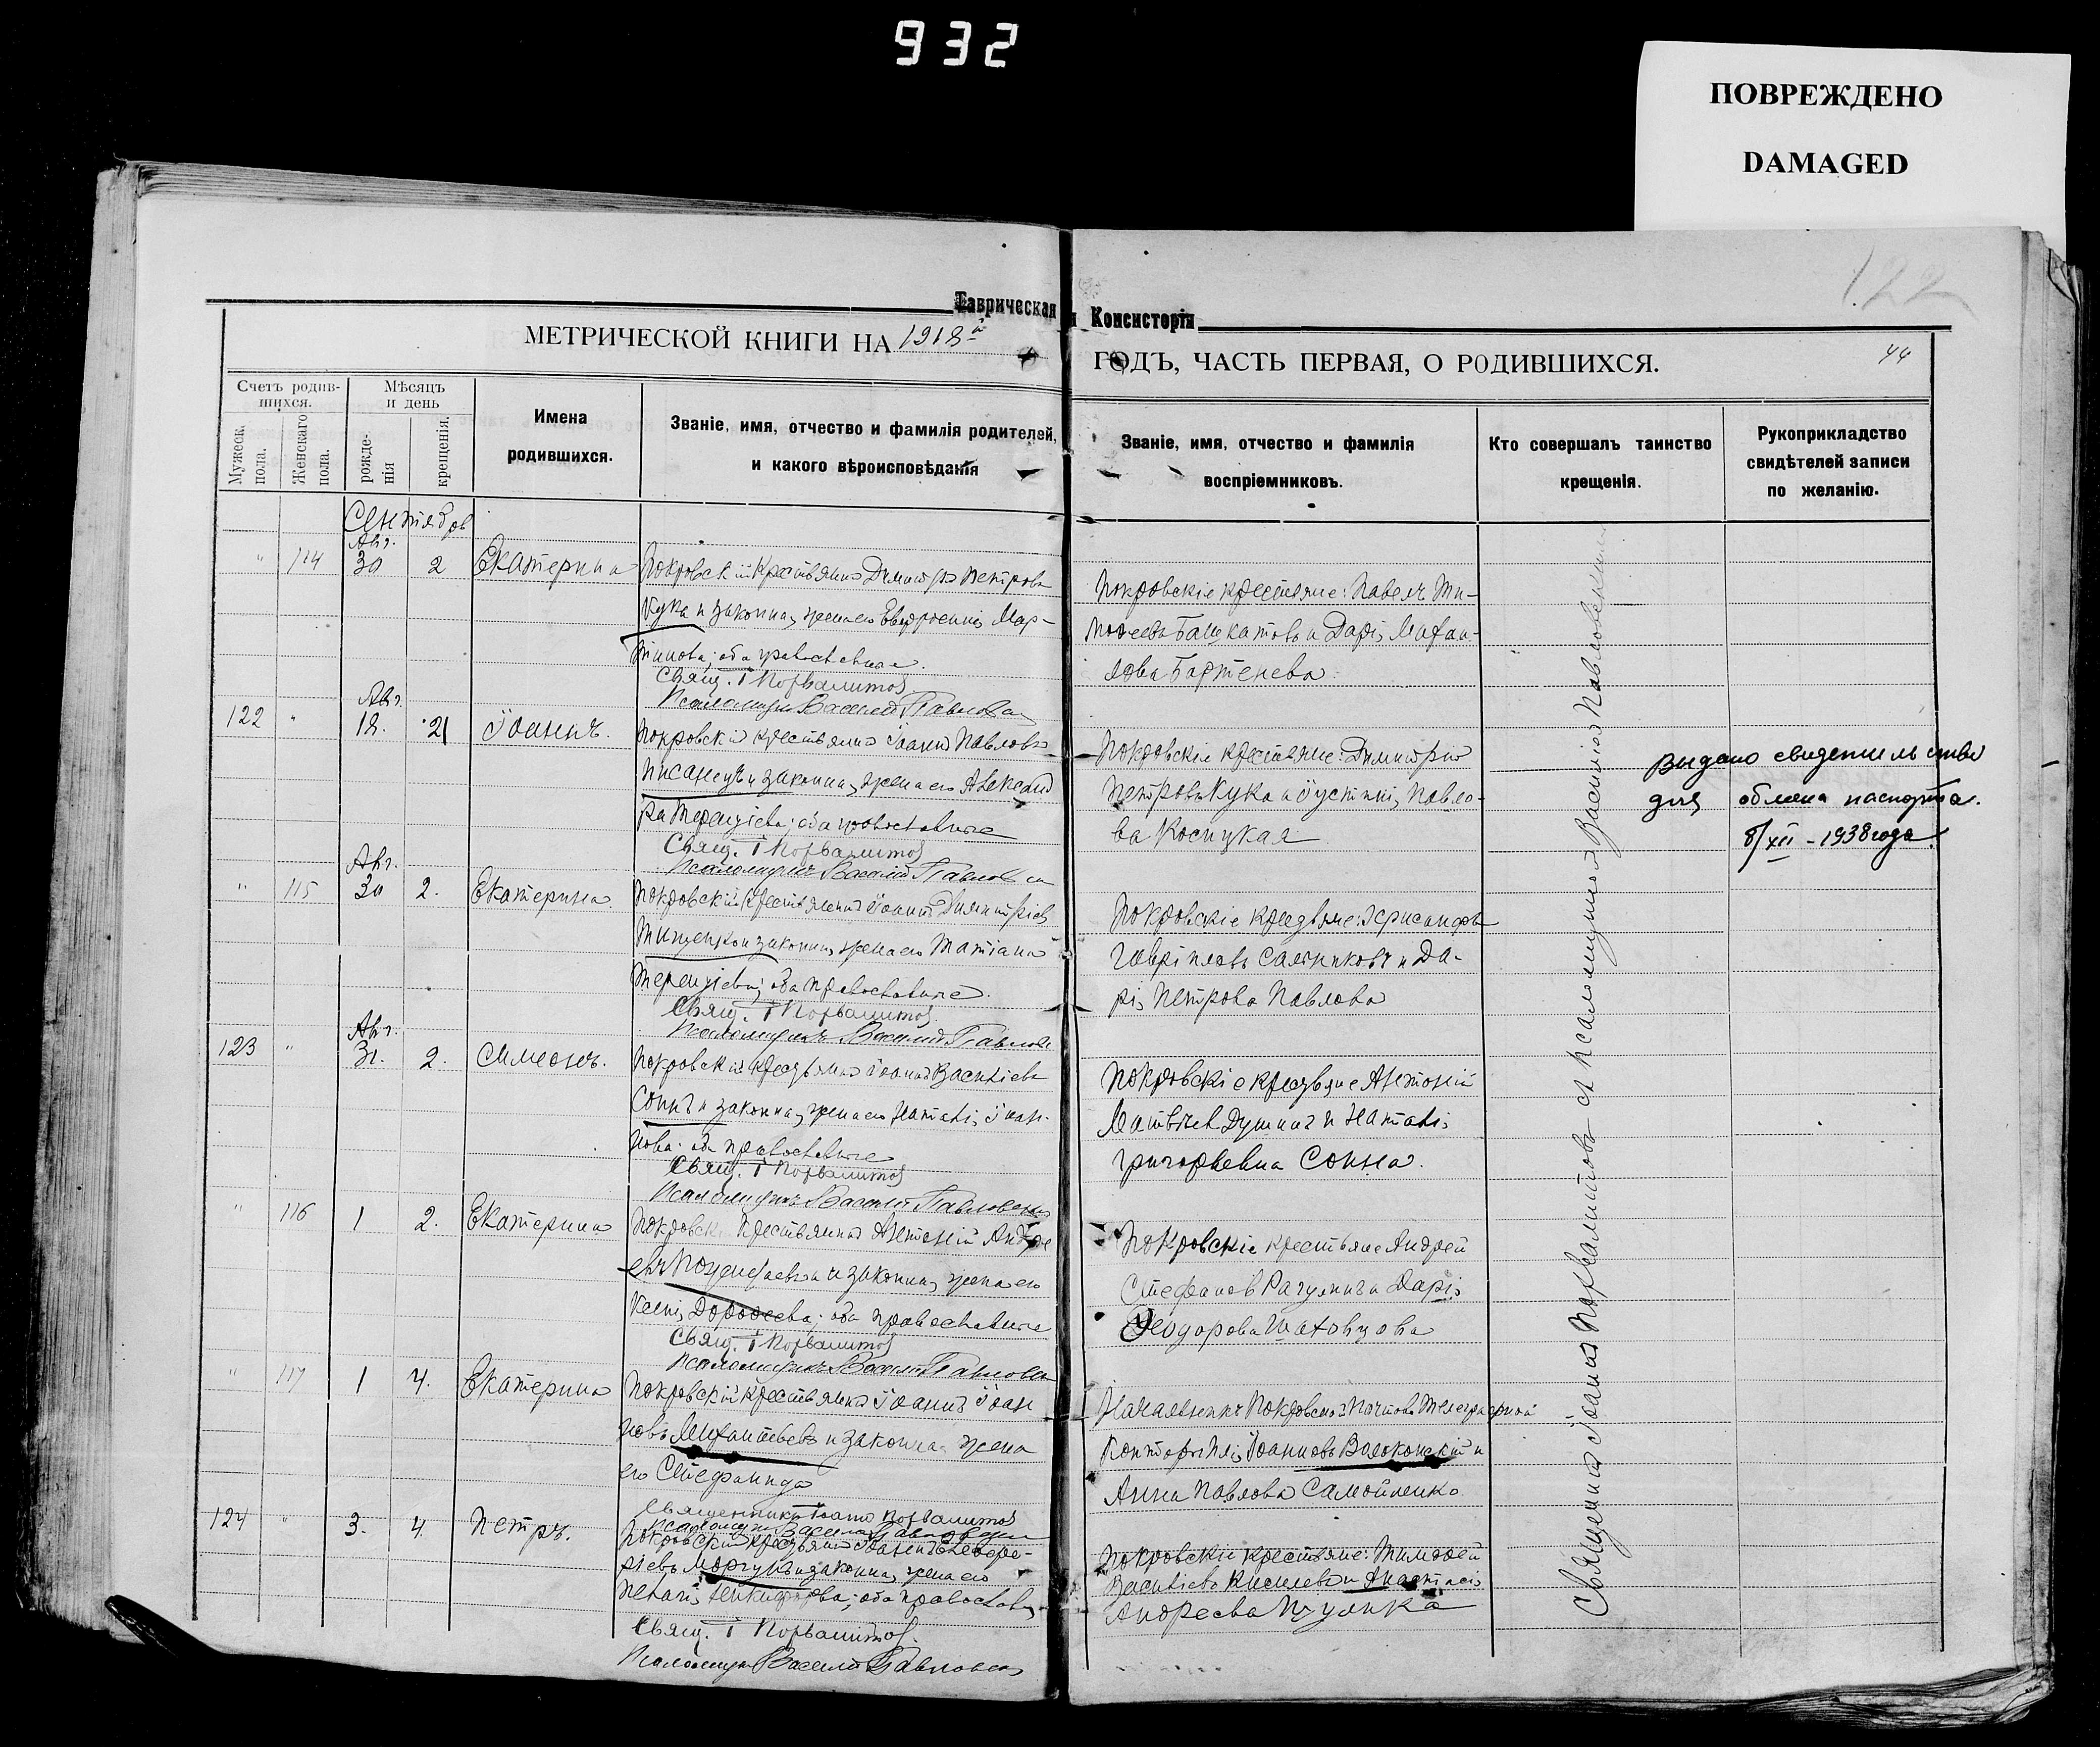 932
ПОВРЕЖДЕНО
DAMAGED
122
Таврическая
Консисторія
МЕТРИЧЕСКОЙ КНИГИ НА 1918й
ГОДЪ, ЧАСТЬ ПЕРВАЯ, О РОДИВШИХСЯ.
44
Счетъ родив-
шихся.
Мужеск.
пола.
Женскаго
пола.
Мѣсяцъ
и день
рожде-
нія
крещенія.
Имена
родившихся.
Званіе, имя, отчество и фамилія родителей,
и какого вѣроисповѣданія
Званіе, имя, отчество и фамилія
воспріемниковъ.
Кто совершалъ таинство
крещенія.
Рукоприкладство
свидѣтелей записи
по желанію.
Сентябрь
Авг.
" 114 30 2 Екатерина
Покровскій крестьянинъ Димитрій Петровъ
Кука и законная жена его Евфросинія Мар-
тинова; оба православные.
Свящ. І Порвалитов
Псаломщикъ Василій Павловск
Покровскіе крестьяне: Павелъ Ти-
мофеевъ Башкатовъ и Дарія Михаи-
лова Бартенева
Авг.
122 " 18. 21 Іоаннъ.
Покровскій крестьянинъ Іоаннъ Павловъ
Писанецъ и законная жена его Александ
ра Терентіева; оба православные
Свящ. І Порвалитов
Псаломщикъ Василій Павловск
Покровскіе крестьяне: Димитрій
Петровъ Кука и Іустинія Павло-
ва Косицкая
Выдано свидетельство
для обмена паспорта.
8/XII - 1938 года.
Авг.
" 115 30 2. Екатерина.
Покровскій крестьянинъ Іоаннъ Димитріев
Тищенко и законная жена его Татіана
Терентіева; оба православные.
Свящ. І Порвалитов.
Псаломщикъ Василій Павлов
Покровскіе крестьяне: Хрисанфъ
Гавріиловъ Сальниковъ и Да-
рія Петрова Павлова
Авг.
123 " 31. 2. Симеонъ.
Покровскій крестьянинъ Іоаннъ Васильевъ
Сонинъ и законная жена его Наталія Іоан-
нова; оба православные
Свящ. І Порвалитов
Псаломщикъ Василій Павловскій
Покровскіе крестьяне Антоній
Матвѣевъ Душинъ и Наталія
Григорьевна Сонина.
" 116 1 2. Екатерина
Покровск. крестьянинъ Антоній Андре
евъ и законная жена его
Ксенія Дорофеева; оба православные
Свящ. І Порвалитов
Псаломщикъ Василій Павловск
Покровскіе крестьяне Андрей
Стефановъ Рагулинъ и Дарія
Феодорова Шаховцова
" 117 1 4. Екатерина
Покровскій крестьянинъ Іоаннъ Іоан
новъ и законная жена
его Стефанида
Священникъ Іоаннъ Порвалитов
Псаломщикъ Василій Павловскій
Начальникъ Покровской Почтово Телеграфной
Конторы Илія Іоанновъ Волоконскій и
Анна Павлова Самойленко
124 " 3. 4. Петръ.
Покровскій крестьянинъ Іоаннъ Елевфе-
ріевъ Моргунъ и законная жена его
Пелагія Никифорова; оба православн.
Свящ. І Порвалитов.
Псаломщик Василій Павловск
Покровскіе крестьяне: Тимофей
Васильевъ Киселевъ и Анастасія
Андреева Цуцка
Священникъ Іоаннъ Порвалитовъ съ псаломщикомъ Василіемъ Павловскимъ